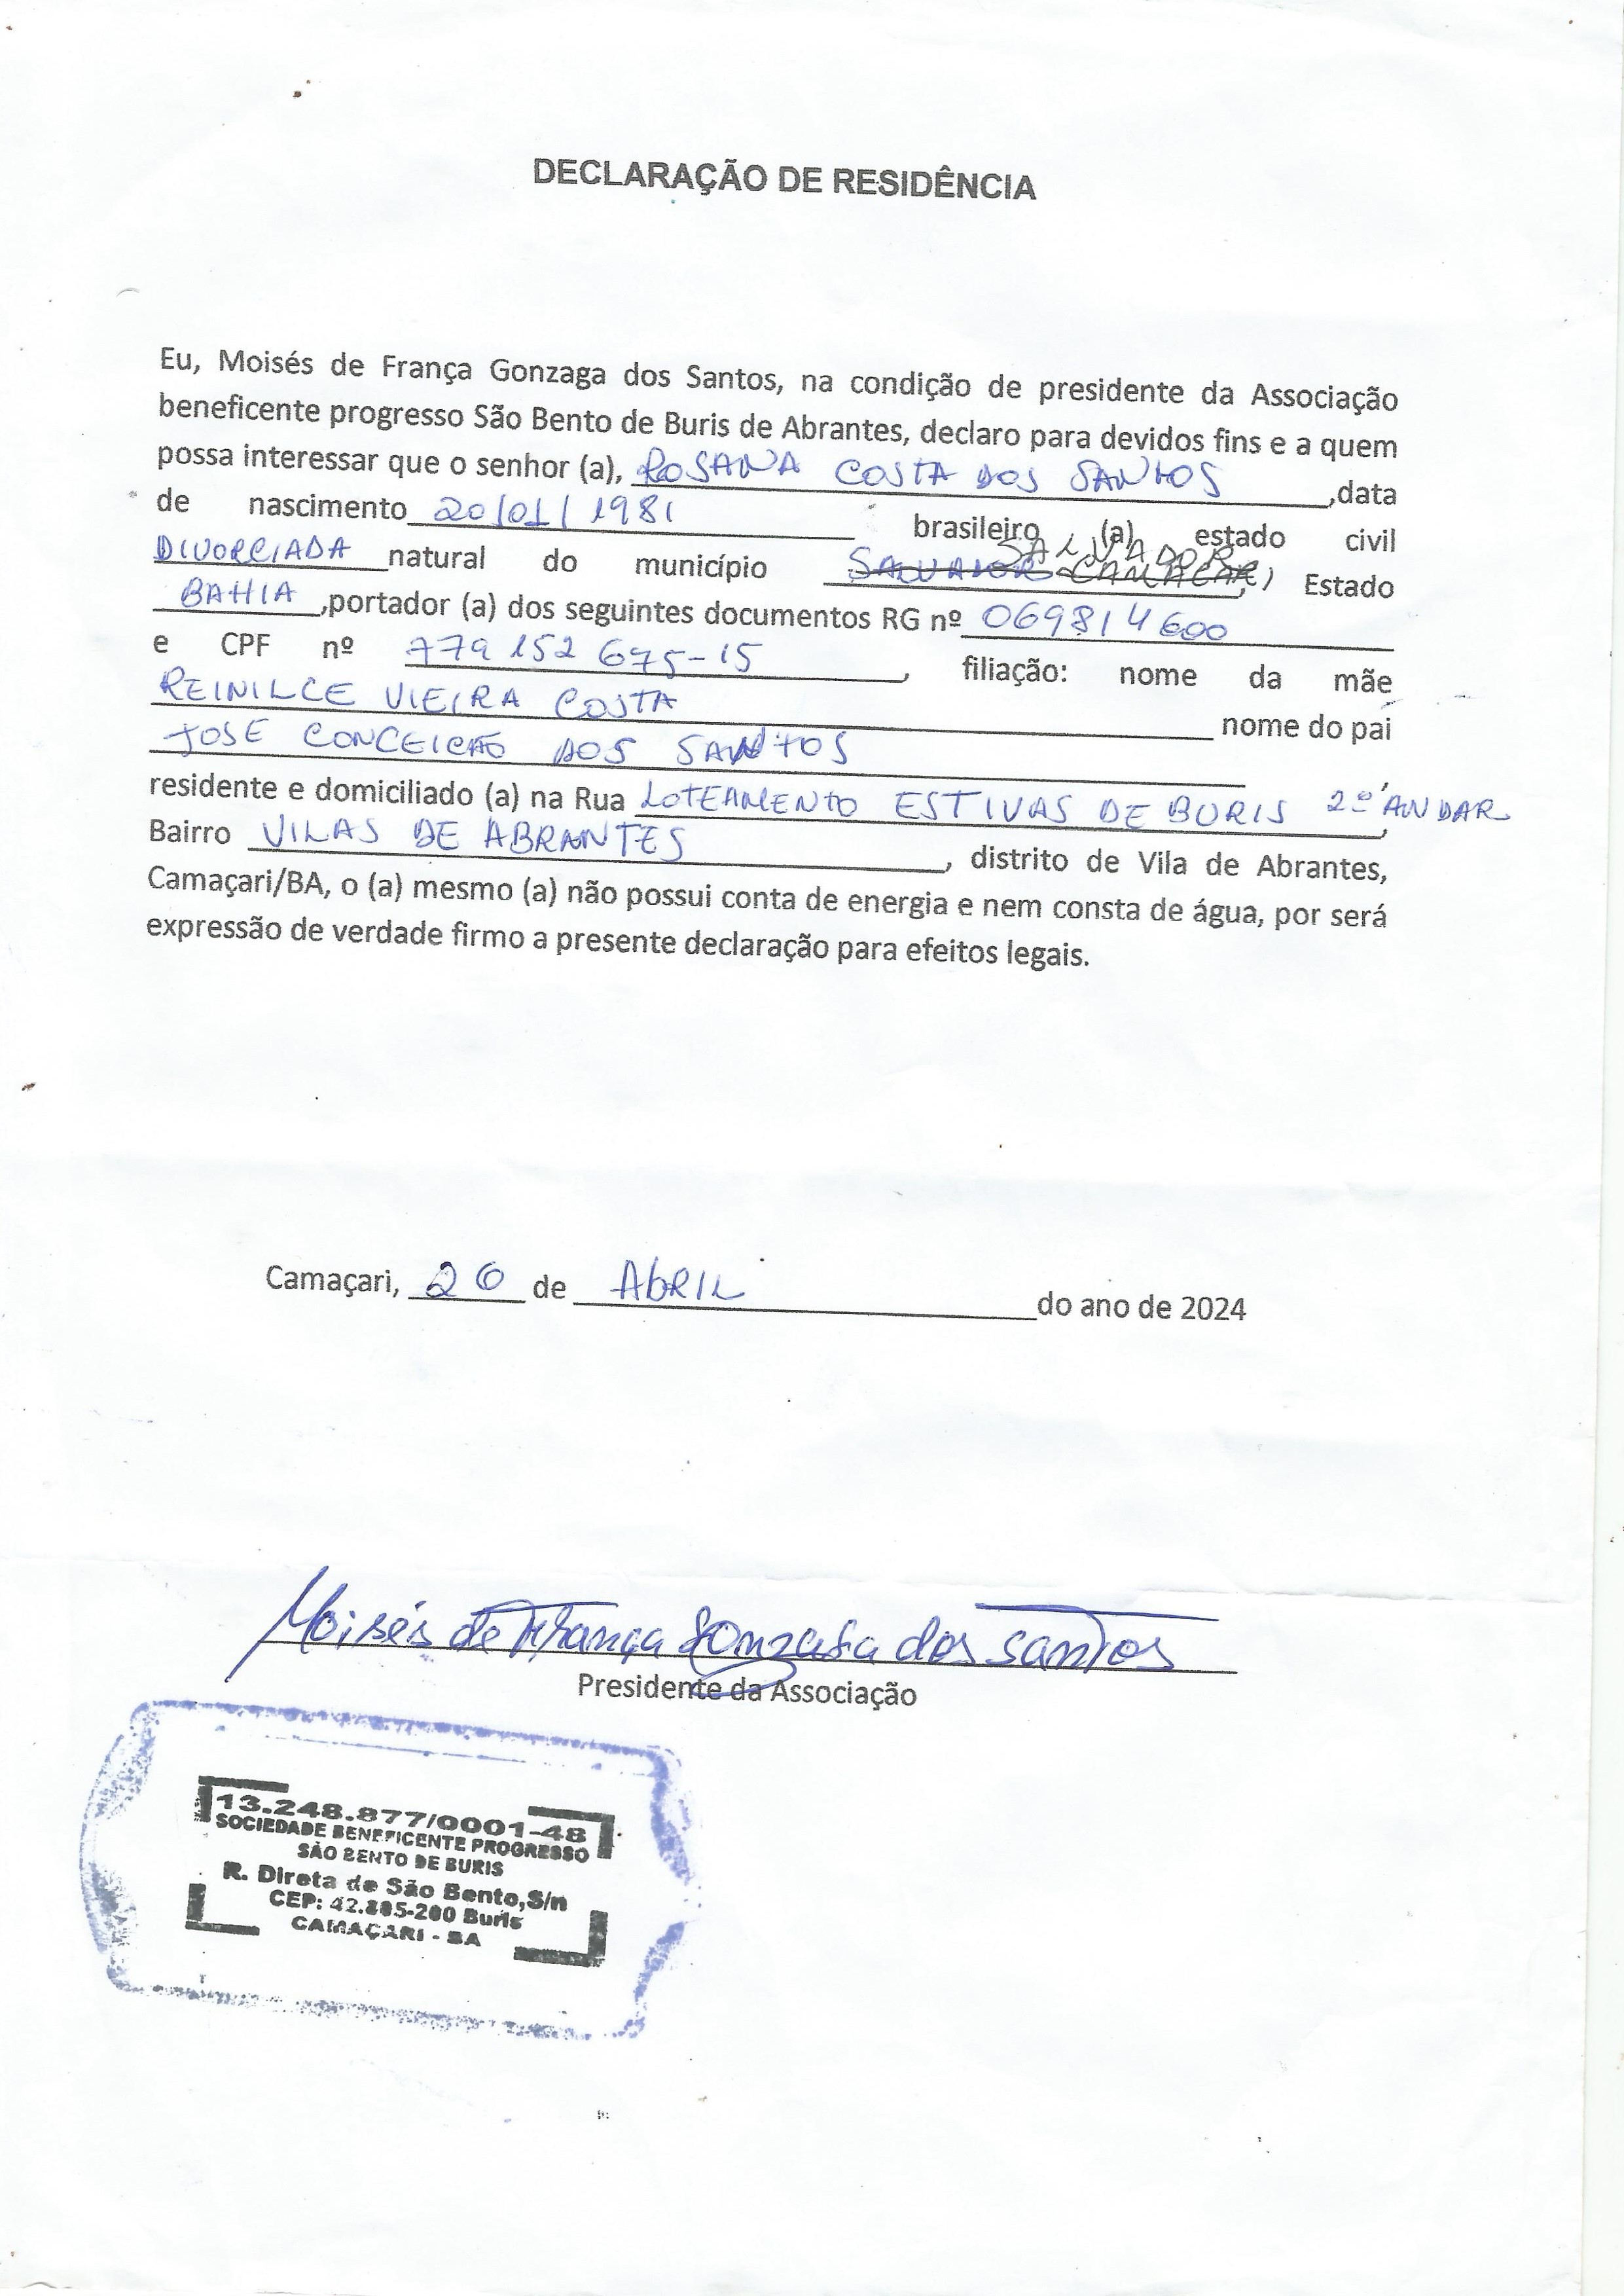 DECLARAÇÃO DE RESIDÊNCIA
Eu, Moisés de França Gonzaga dos Santos, na condição de presidente da Associação
beneficente progresso São Bento de Buris de Abrantes, declaro para devidos fins e a quem
possa interessar que o senhor (a), ROSANA COSTA DOS SANTOS ,data
de nascimento 20/01/1981 brasileiro (a) estado civil
SALVADOR
DIVORCIADA natural do município SALVADOR CAMAÇARI, Estado
BAHIA ,portador (a) dos seguintes documentos RG nº 069814600
e CPF nº 779 152 675-15 , filiação: nome da mãe
REINILCE VIEIRA COSTA nome do pai
JOSE CONCEICÃO DOS SANTOS ,
residente e domiciliado (a) na Rua LOTEAMENTO ESTIVAS DE BURIS 2º ANDAR ,
Bairro VILAS DE ABRANTES , distrito de Vila de Abrantes,
Camaçari/BA, o (a) mesmo (a) não possui conta de energia e nem consta de água, por será
expressão de verdade firmo a presente declaração para efeitos legais.
Camaçari, 20 de ABRIL do ano de 2024
Moisés de França Gonzaga dos Santos
Presidente da Associação
13.248.877/0001-48
SOCIEDADE BENEFICENTE PROGRESSO
SÃO BENTO DE BURIS
R. Direta de São Bento,S/n
CEP: 42.885-200 Buris
CAMAÇARI - BA